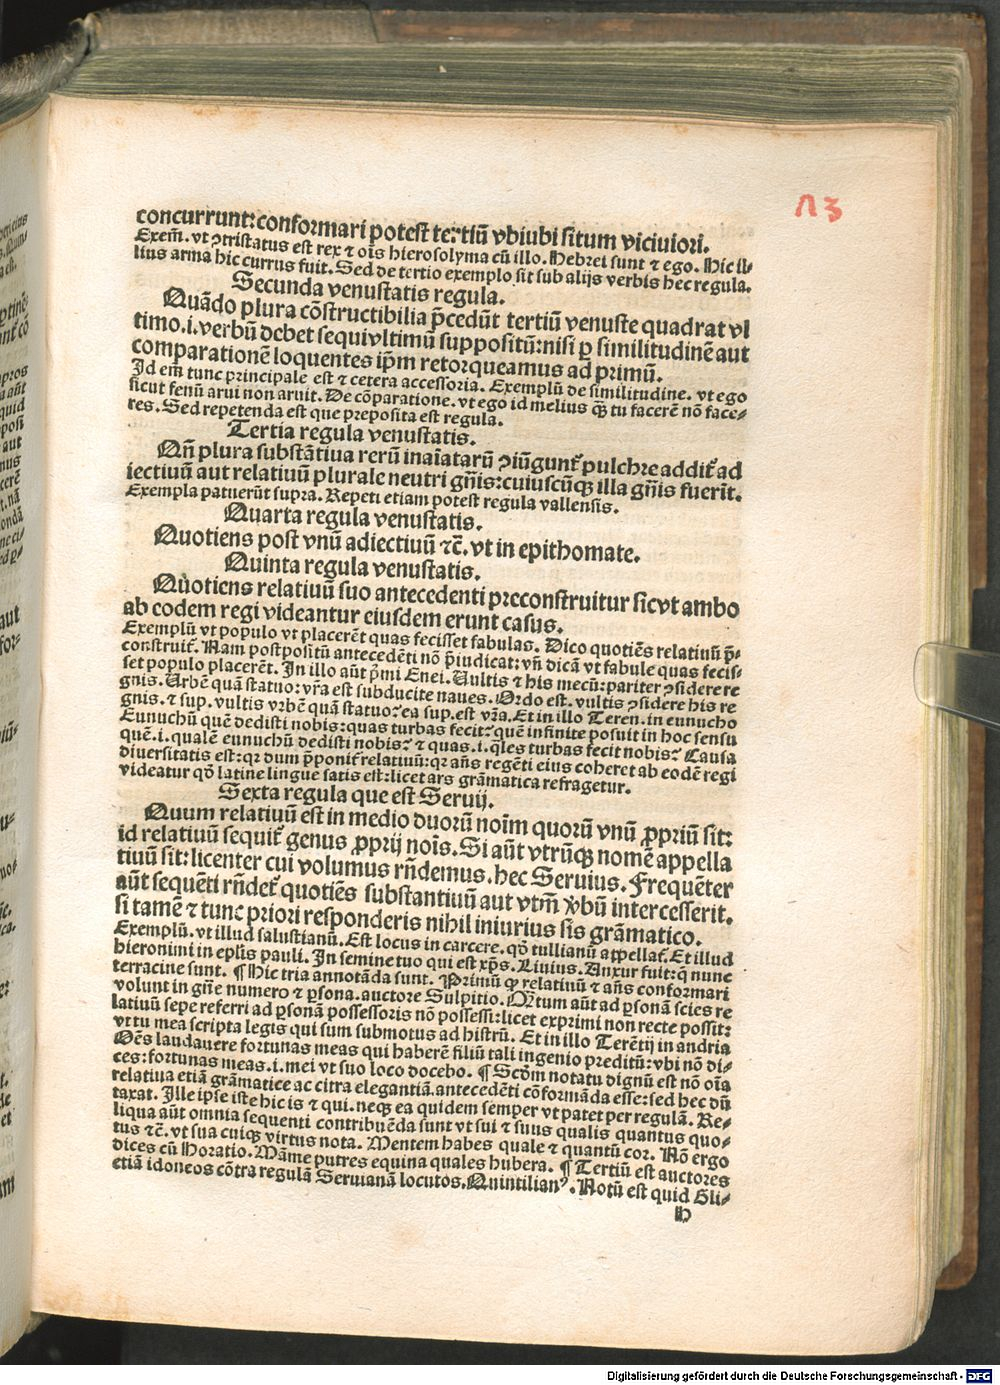 113
concurrunt: conformari potest tertiũ vbiubi situm viciuiori.
Exem̃. vt ꝯtristatus est rex ⁊ oĩs hierosolyma cũ illo. Hebrei sunt ⁊ ego. Hic il-
lius arma hic currus fuit. Sed de tertio exemplo sit sub alijs verbis hec regula.
Secunda venustatis regula.
Quãdo plura cõstructibilia p̃cedũt tertiũ venuste quadrat vl
timo .i. verbũ debet sequi vltimũ suppositũ: nisi ꝑ similitudinẽ aut
comparationẽ loquentes ip̃m retorqueamus ad primũ.
Id em̃ tunc principale est ⁊ cetera accessoria. Exemplũ de similitudine. vt ego
sicut fenũ arui non aruit. De cõparatione. vt ego id melius q̃ꝫ tu facerẽ nõ face-
res. Sed repetenda est que preposita est regula.
Tertia regula venustatis.
Qñ plura substãtiua rerũ inaĩatarũ ꝯiũgunt̃ pulchre addit̃ ad
iectiuũ aut relatiuũ plurale neutri gñis: cuiuscũqꝫ illa gñis fuerĩt.
Exempla patuerũt supra. Repeti etiam potest regula vallensis.
Quarta regula venustatis.
Quotiens post vnũ adiectiuũ ⁊c̃. vt in epithomate.
Quinta regula venustatis.
Quotiens relatiuũ suo antecedenti preconstruitur sicvt ambo
ab eodem regi videantur eiusdem erunt casus.
Exemplũ vt populo vt placerẽt quas fecisset fabulas. Dico quotiẽs relatiuũ p̃-
construit̃. Nam postpositũ antecedẽti nõ p̃iudicat: vñ dicã vt fabule quas fecis-
set populo placerẽt. In illo aũt p̃mi Enei. Uultis ⁊ his mecũ: pariter ꝯsidere re
gnis. Urbẽ quã statuo: vr̃a est subducite naues. Ordo est. vultis ꝯsidere his re
gnis. ⁊ sup. vultis vrbẽ quã statuo? ea sup. est vr̃a. Et in illo Teren. in eunucho
Eunuchũ quẽ dedisti nobis: quas turbas fecit? quẽ infinite posuit in hoc sensu
quẽ .i. qualẽ eunuchũ dedisti nobis? ⁊ quas .i. q̃les turbas fecit nobis? Causa
diuersitatis est: qꝛ dum p̃ponit̃ relatiuũ: qꝛ añs regẽti eius coheret ab eodẽ regi
videatur qõ latine lingue satis est: licet ars grãmatica refragetur.
Sexta regula que est Seruij.
Quum relatiuũ est in medio duorũ noĩm quorũ vnũ ꝓpriũ sit:
id relatiuũ sequit̃ genus ꝓprij noĩs. Si aũt vtrũqꝫ nomẽ appella
tiuũ sit: licenter cui volumus rñdemus. hec Seruius. Frequẽter
aũt sequẽti rñdet̃ quotiẽs substantiuũ aut vtm̃ v̾bũ intercesserit.
si tamẽ ⁊ tunc priori responderis nihil iniurius sis grãmatico.
Exemplũ. vt illud salustianũ. Est locus in carcere. qõ tullianũ appellat̃. Et illud
hieronimi in epl̃is pauli. In semine tuo qui est xp̃s. Liuius. Anxur fuit: q̃ nunc
terracine sunt. ¶ Hic tria annotãda sunt. Primũ qꝙ relatiuũ ⁊ añs conformari
volunt in gñe numero ⁊ ꝑsona. auctore Sulpitio. M̃tum aũt ad ꝑsonã scies re
latiuũ sepe referri ad ꝑsonã possessoris nõ possessi: licet exprimi non recte possit:
vt tu mea scripta legis qui sum submotus ad histrũ. Et in illo Terẽtij in andria
Oẽs laudauere fortunas meas qui haberẽ filiũ tali ingenio preditũ: vbi nõ di-
ces: fortunas meas .i. mei vt suo loco docebo. ¶ Scõm notatu dignũ est nõ oĩa
relatiua etiã grãmatice ac citra elegantiã. antecedẽti cõformãda esse: sed hec dũ
taxat. Ille ipse iste hic is ⁊ qui. neqꝫ ea quidem semper vt patet per regulã. Re-
liqua aũt omnia sequenti contribuẽda sunt vt sui ⁊ suus qualis quantus quo-
tus ⁊c̃. vt sua cuiqꝫ virtus nota. Mentem habes quale ⁊ quantũ cor. Nõ ergo
dices cũ Horatio. Mãme putres equina quales hubera. ¶ Tertiũ est auctores
etiã idoneos cõtra regulã Seruianã locutos. Quintilianꝰ. Notũ est quid Gli-
h
Digitalisierung gefördert durch die Deutsche Forschungsgemeinschaft - DFG